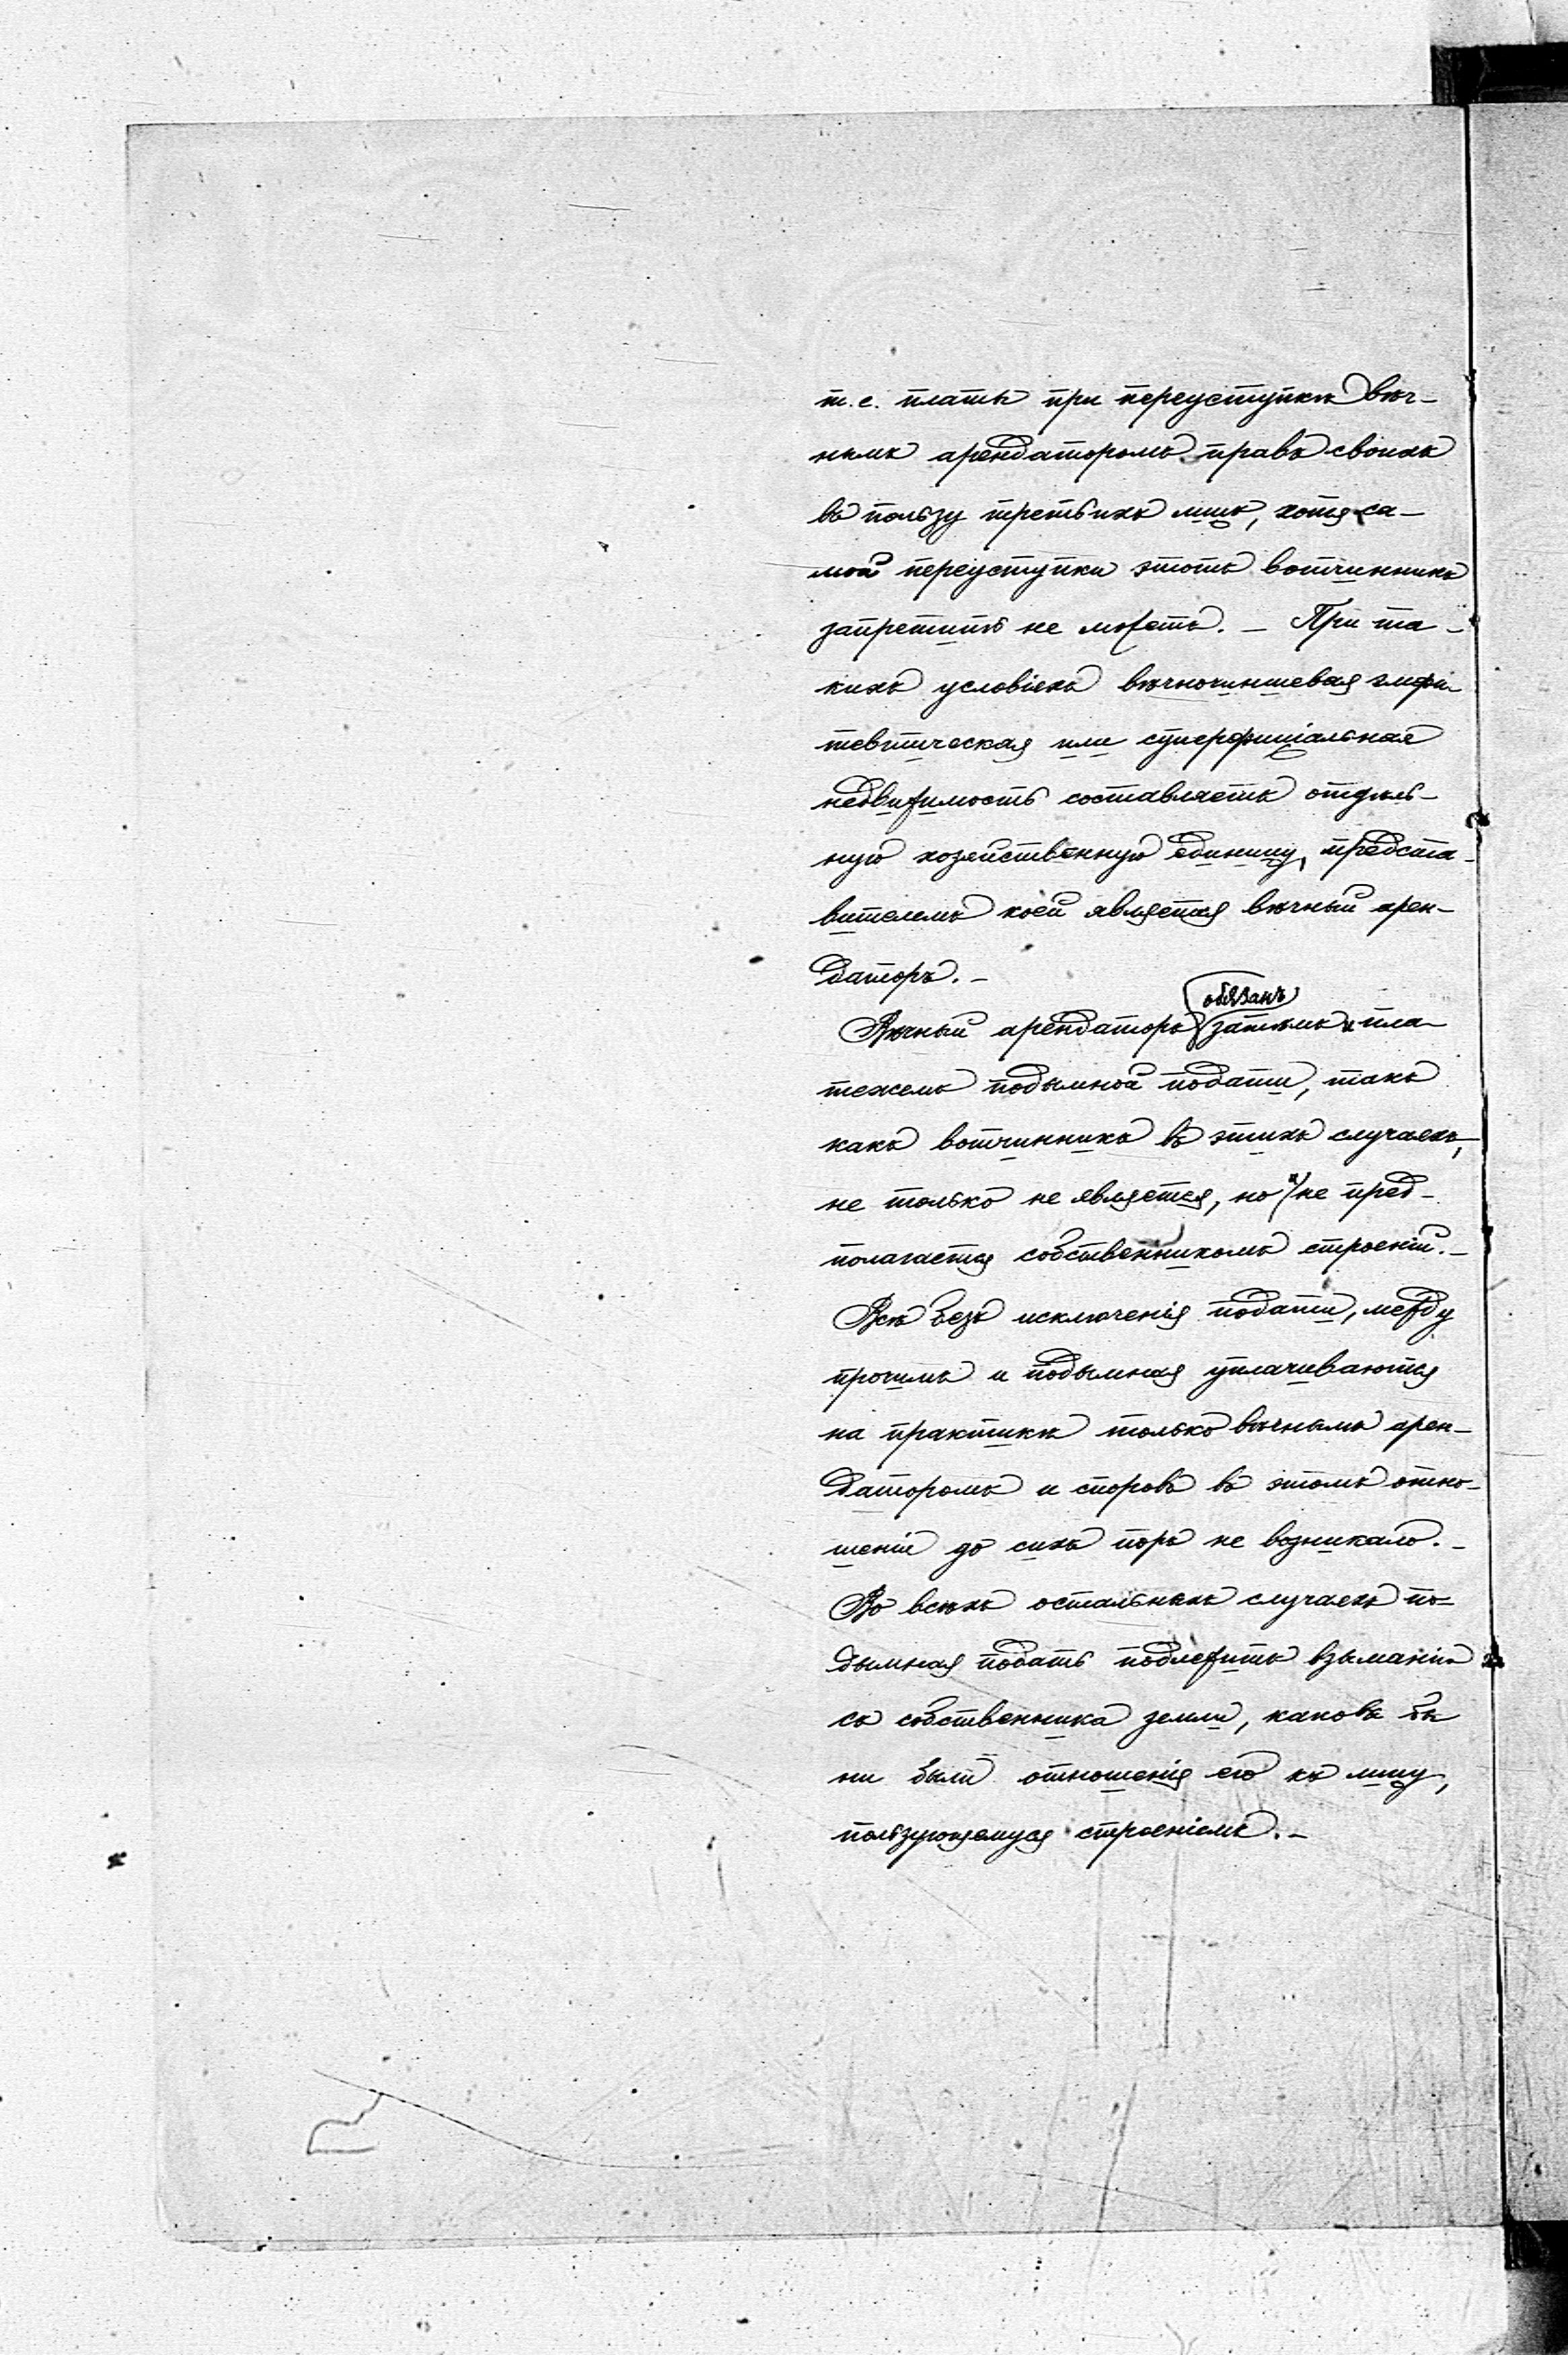 т.е. платы при переуступкѣ вѣч-
нымъ арендаторомъ правъ своихъ
въ пользу третьихъ лицъ, хотя са-
мой переуступки этотъ вотчинникъ
запретить не можетъ. – При та-
кихъ условіяхъ вѣчночиншевая эмфи-
тевтическая или суперфиціальная
недвижимость составляетъ отдѣль-
ную хозяйственную единицу, предста-
вителемъ коей является вѣчный арен-
даторъ. –
обязанъ
Вѣчный арендаторъ затѣмъ и пла-
тежемъ подымной подати, такъ
какъ вотчинникъ въ этихъ случаяхъ,
не только не является, но и не пред-
полагается собственникомъ строеній. –
Всѣ безъ исключенія подати, между
прочимъ и подымная уплачиваются
на практикѣ только вѣчнымъ арен-
даторомъ и споровъ въ этомъ отно-
шеніи до сихъ поръ не возникало. –
Во всѣхъ остальныхъ случаяхъ по-
дымная подать подлежитъ взыманію
съ собственника земли, каковы бы
ни были отношенія его къ лицу,
пользующемуся строеніемъ. –